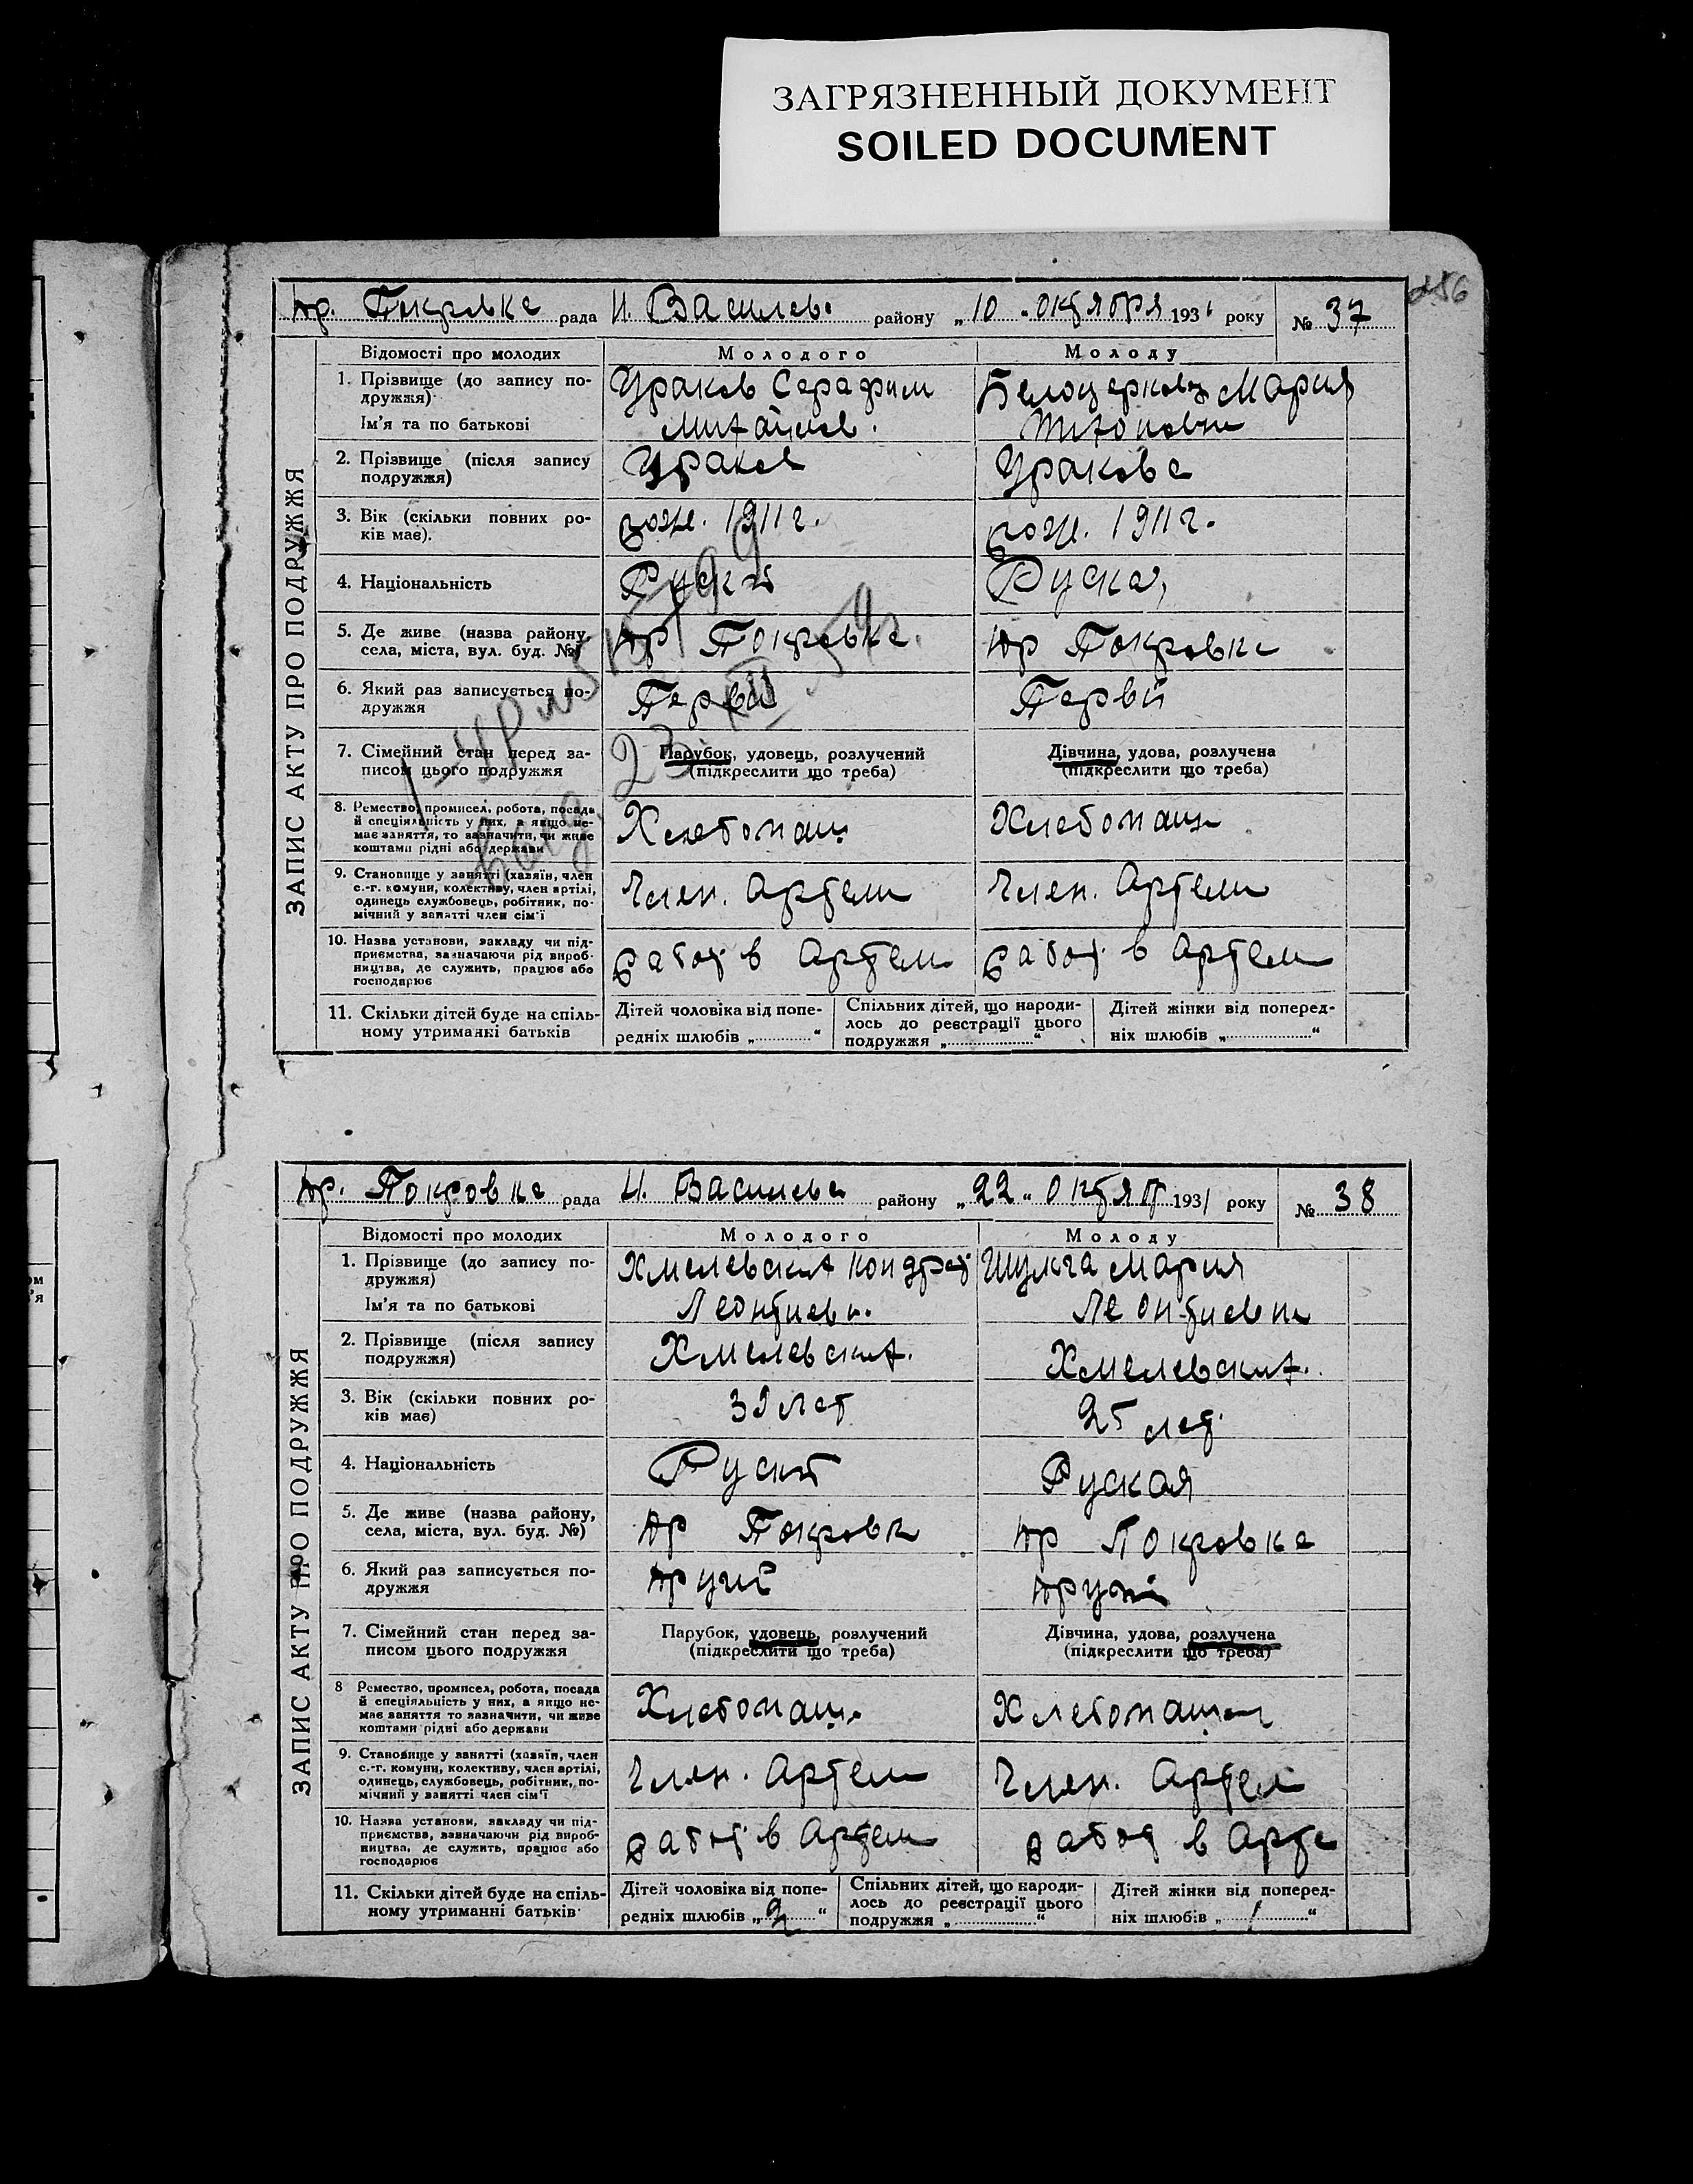 ЗАГРЯЗНЕННЫЙ ДОКУМЕНТ
SOILED DOCUMENT
256
Др. Покровка рада Н. Василев. району „10 „ октября 1931 року № 37
ЗАПИС АКТУ ПРО ПОДРУЖЖЯ
Відомості про молодих Молодого Молоду
1. Прізвище (до запису по-
дружжя)
Ім'я та по батькові
Ураков Серафим
Михайлов.
Белоцерковц Мария
Тихоновна
2. Прізвище (після запису
подружжя)
Ураков
Уракова
3. Вік (скільки повних ро-
ків має).
рож. 1911 г.
рож. 1911 г.
4. Національність
Руский
Руска
5. Де живе (назва району,
села, міста, вул. буд. №)
Др Покровка
Др Покровка
6. Який раз записується по-
дружжя
Первй
Первй
7. Сімейний стан перед за-
писом цього подружжя
Парубок, удовець, розлучений
(підкреслити що треба)
Дівчина, удова, розлучена
(підкреслити що треба)
8. Ремество, промисел, робота, посада
й спеціяльність у них, а якщо не-
має заняття, то зазначити, чи живе
коштами рідні або держави
Хлебопаш
Хлебопаш
9. Становище у занятті (хазяїн, член
с.-г. комуни, колективу, член артілі,
одинець службовець, робітник, по-
мічний у занятті член сім'ї
Член. Артели
Член. Артели
10. Назва установи, закладу чи під-
приємства, зазначаючи рід вироб-
ництва, де служить, працює або
господарює
работ в Артели
работ в Артели
11. Скільки дітей буде на спіль-
ному утриманні батьків
Дітей чоловіка від попе-
редніх шлюбів „ “
Спільних дітей, що народи-
лось до реєстрації цього
подружжя „ “
Дітей жінки від поперед-
ніх шлюбів „ “
Др. Покровка рада Н. Василева району „22„ октяб 1931 року № 38
ЗАПИС АКТУ ПРО ПОДРУЖЖЯ
Відомості про молодих Молодого Молоду
1. Прізвище (до запису по-
дружжя)
Ім'я та по батькові
Хмелевский Кондрат
Леонтиеви.
Шульга Мария
Леонтиевна
2. Прізвище (після запису
подружжя)
Хмелевский.
Хмелевский.
3. Вік (скільки повних ро-
ків має)
39 лет
25 лет
4. Національність
Руский
Руская
5. Де живе (назва району,
села, міста, вул. буд. №)
Др Покровк
Др Покровка
6. Який раз записується по-
дружжя
7. Сімейний стан перед за-
писом цього подружжя
Парубок, удовець, розлучений
(підкреслити що треба)
Дівчина, удова, розлучена
(підкреслити що треба)
8 Ремество, промисел, робота, посада
й спеціяльність у них, а якщо не-
має заняття то зазначити, чи живе
коштами рідні або держави
Хлебопаш
Хлебопаш
9. Становище у занятті (хазяїн, член
с.-г. комуни, колективу, член артілі,
одинець, службовець, робітник, по-
мічний у занятті член сім'ї
Член. Артели
Член. Артел
10. Назва установи, закладу чи під-
приємства, зазначаючи рід вироб-
ництва, де служить, працює або
господарює
работ в Артели
работ в Арте
11. Скільки дітей буде на спіль-
ному утриманні батьків
Дітей чоловіка від попе-
редніх шлюбів „ 2 “
Спільних дітей, що народи-
лось до реєстрації цього
подружжя „ “
Дітей жінки від поперед-
ніх шлюбів „ 1 “